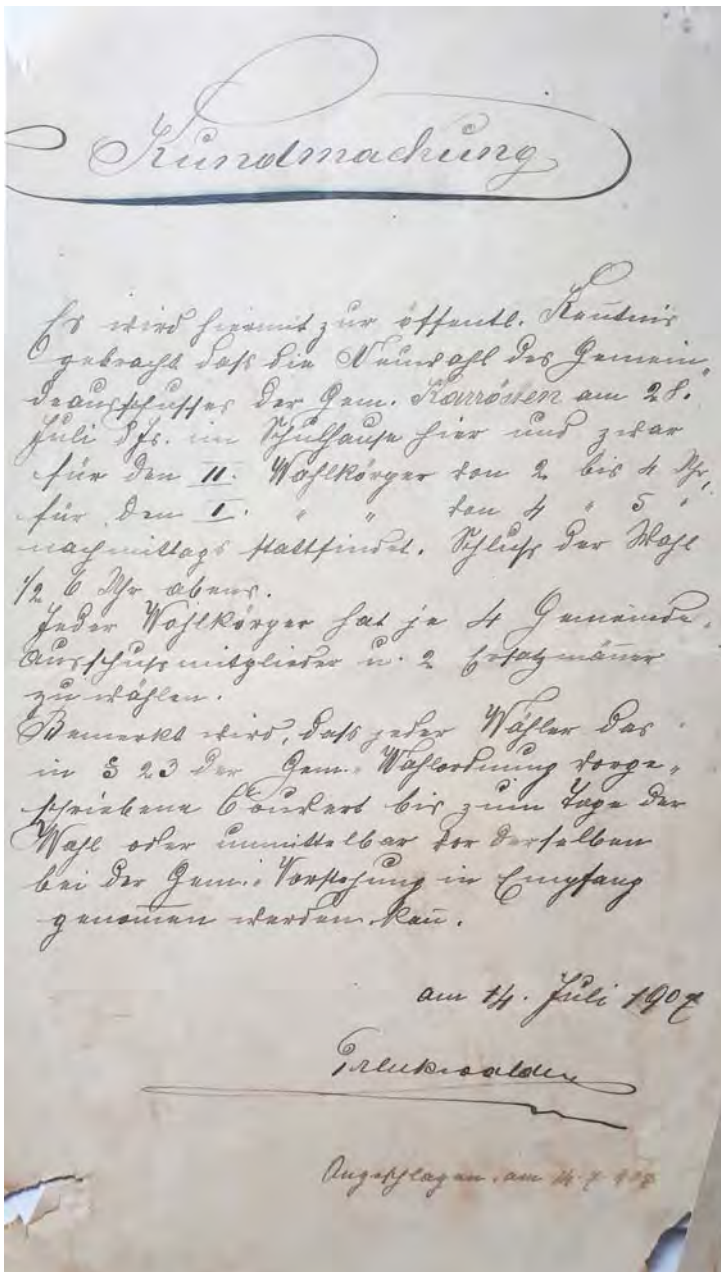 Kundmachung
Es wird hiermit zur öffentl. Keñtnis
gebracht daß die Neuwahl des Gemein„
deausschusses der Gem. Karrösten am 28.
Juli d Js. im Schulhause hier und zwar
für den II. Wahlkörper von 2 bis 4 Uhr,
für den I. " " von 4 " 5 "
nachmittags stattfindet. Schluß der Wahl
1/2 6 Uhr abens.
Jeder Wahlkörper hat je 4 Gemeinde„
Ausschußmitglieder u. 2 Ersatzmäñer
zu wählen.
Bemerkt wird, dass jeder Wähler das
in § 23 der Gem.-Wahlordnung vorge„
schriebene Couvert bis zum Tage der
Wahl oder unmittelbar vor derselben
bei der Gem.-Vorstehung in Empfang
genom̄en werden kañ.
am 14. Juli 1907
Trenkwalder
Angeschlagen am 14. 7. 907